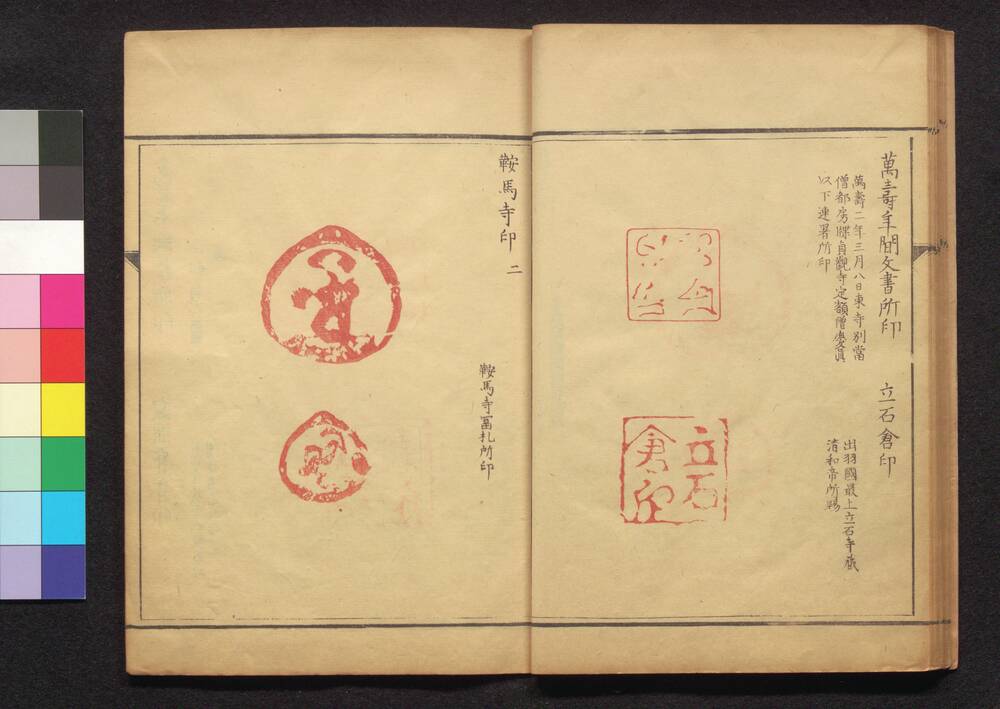 萬壽年間文書所印
萬壽二年三月八日東寺別當
僧都房牒貞觀寺定額僧慶真
以下連署所印
立石倉印
出羽國最上立石寺藏
清和帝所賜
立石
倉印
鞍馬寺印 二
鞍馬寺冨札所印